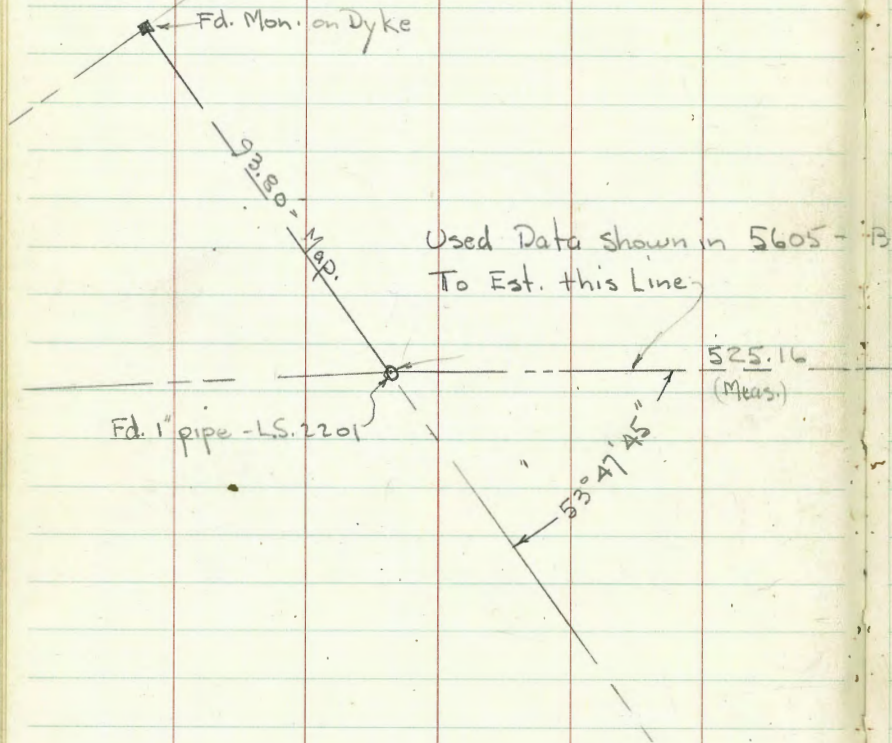 Fd. Mon. on Dyke
93.80 - Map.
Used Data shown in 5605 - B
To Est. this Line
525.16
(Meas.)
Fd. 1" pipe - L.S. 2201
53° 47' 45"